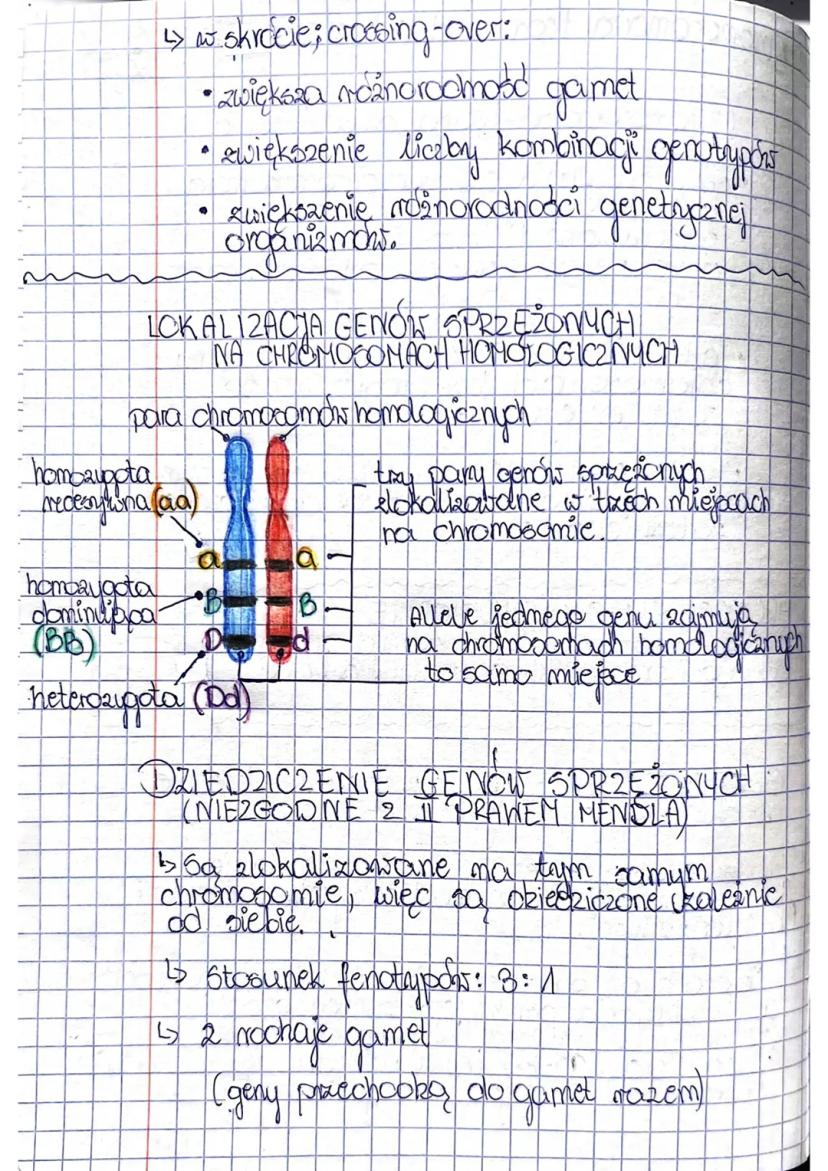 ↳ w skrócie; crossing-over:
• zwiększa różnorodność gamet
• zwiększenie liczby kombinacji genotypów
• zwiększenie różnorodności genetycznej
organizmów.
LOKALIZACJA GENÓW SPRZĘŻONYCH
NA CHROMOSOMACH HOMOLOGICZNYCH
para chromosomów homologicznych
homozygota
recesywna (aa)
trzy pary genów sprzężonych
zlokalizowane w trzech miejscach
na chromosomie.
a a
homozygota
dominująca
(BB)
B B
D d
Allele jednego genu zajmują
na chromosomach homologicznych
to samo miejsce
heterozygota (Dd)
① DZIEDZICZENIE GENÓW SPRZĘŻONYCH
(NIEZGODNE Z II PRAWEM MENDLA)
↳ Są zlokalizowane na tym samym
chromosomie, więc są dziedziczone zależnie
od siebie.
↳ Stosunek fenotypów: 3:1
↳ 2 rodzaje gamet
(geny przechodzą do gamet razem)